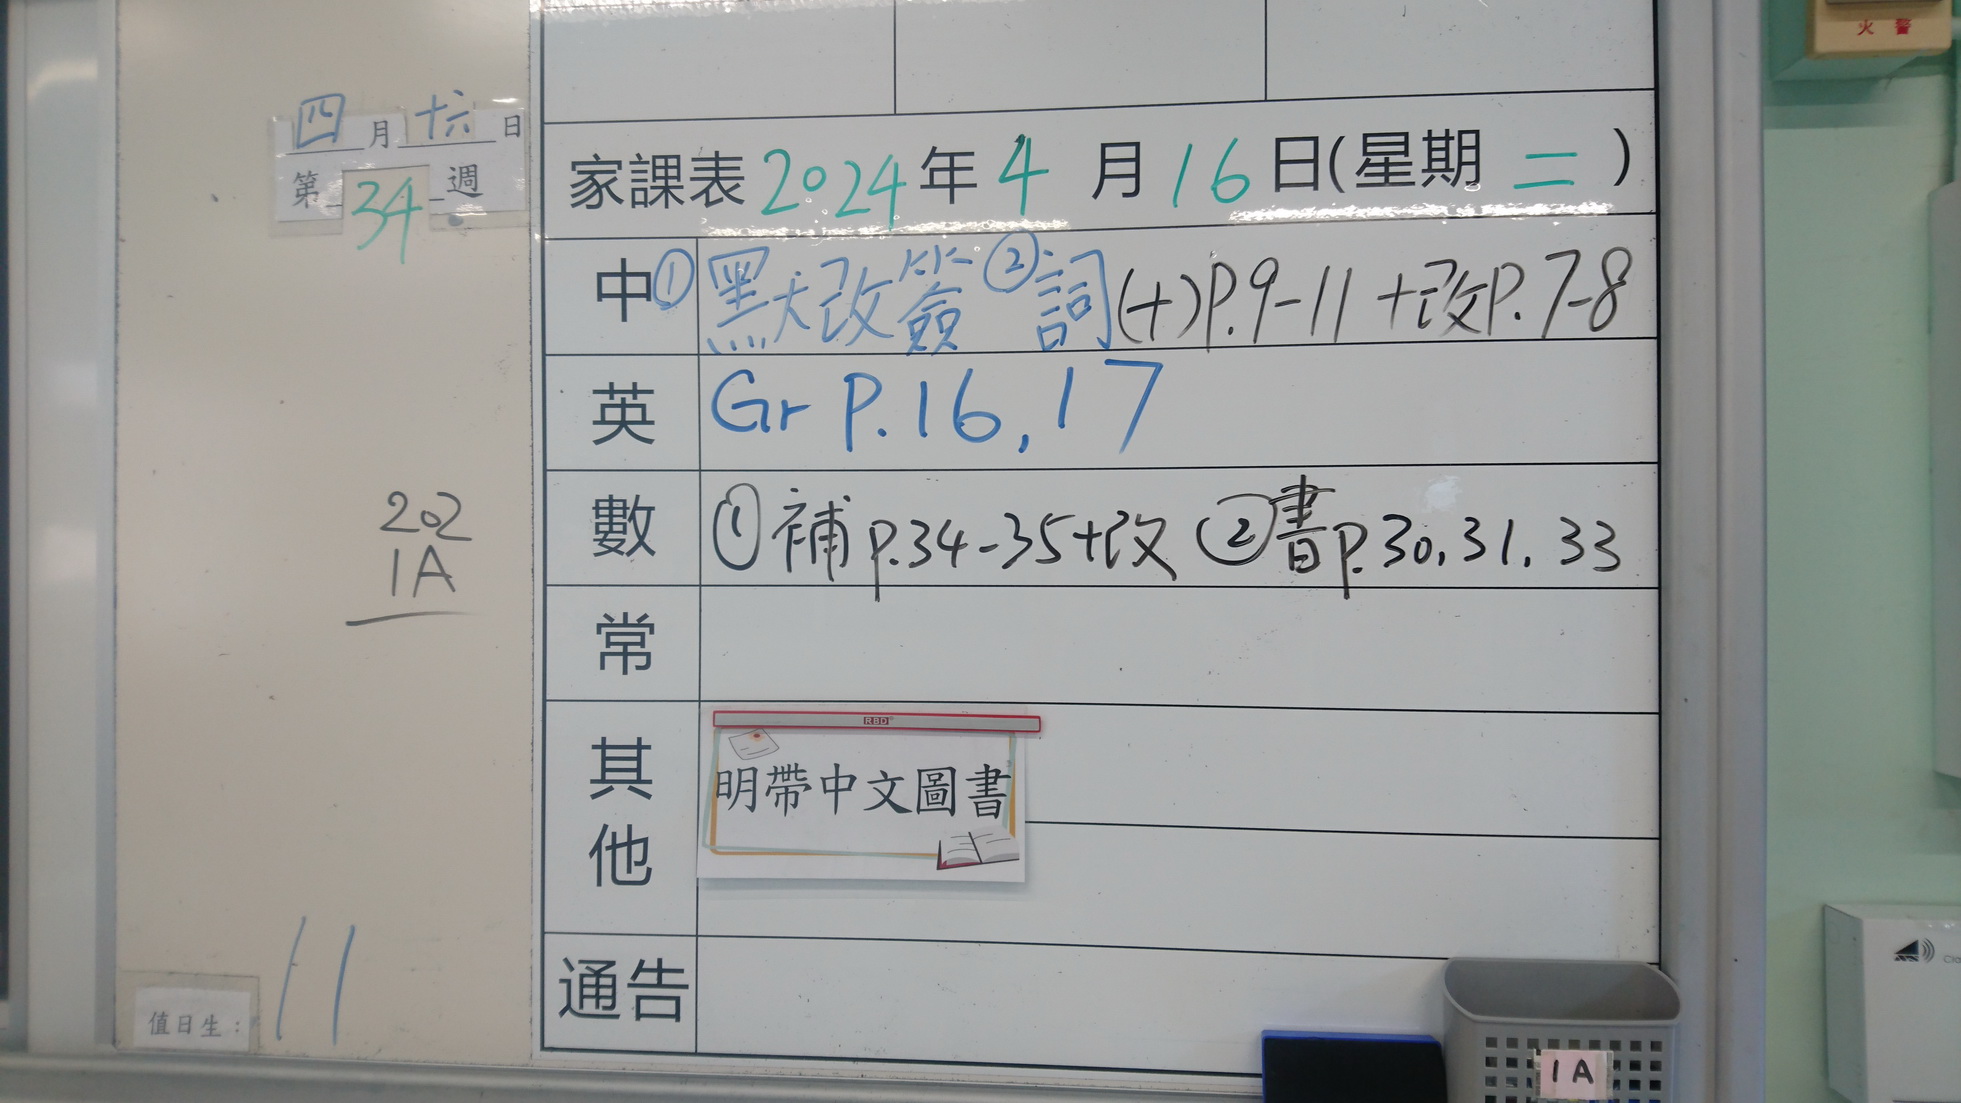 火警
四月十六日
第34週
家課表2024年4月16日(星期二)
中 ①默改簽 ②詞(十)P.9-11+改P.7-8
英 Gr P.16,17
數 ①補P.34-35+改 ②書P.30,31,33
202
1A
常
其他
RBD
明帶中文圖書
通告
值日生：11
1A